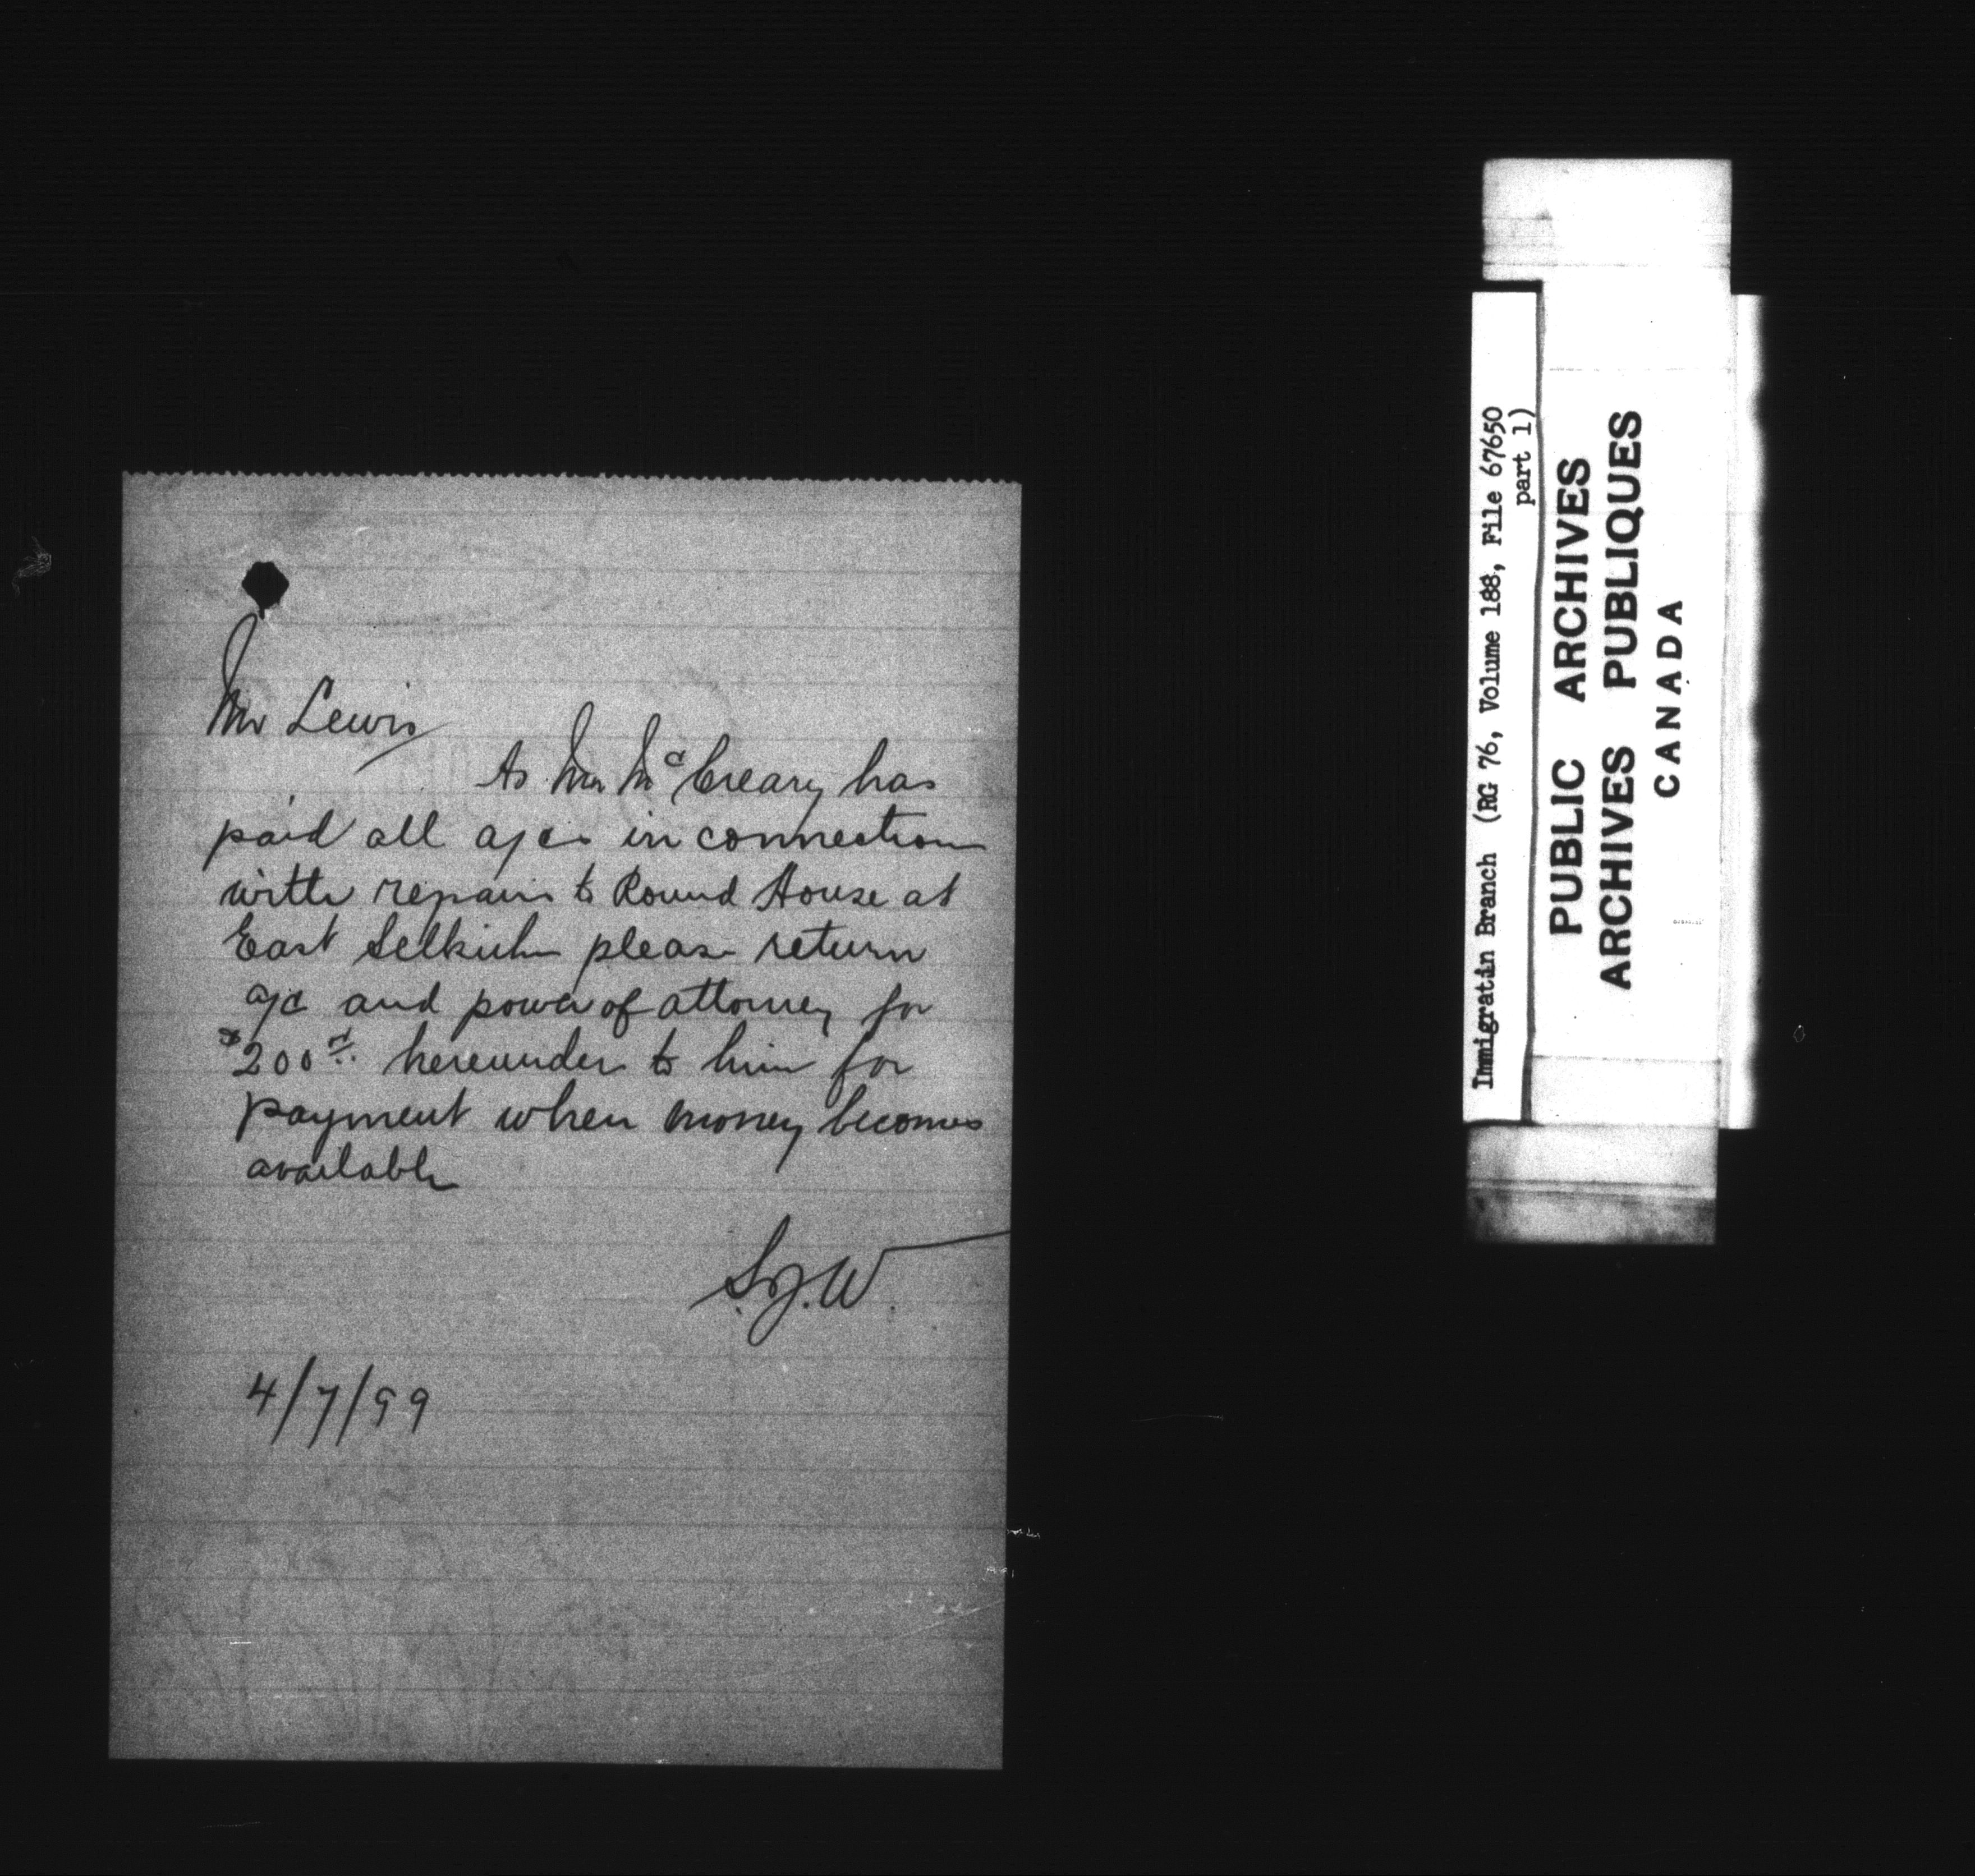 Mr Lewis
As Mr McCreary has
paid all a/cs in connection
with repairs to Round House at
East Selkirk please return
a/c and power of attorney for
$200 hereunder to him for
payment when money becomes
available
4/7/99
Immigratin Branch (RG 76, Volume 188, File 67650
part 1)
PUBLIC ARCHIVES
ARCHIVES PUBLIQUES
CANADA